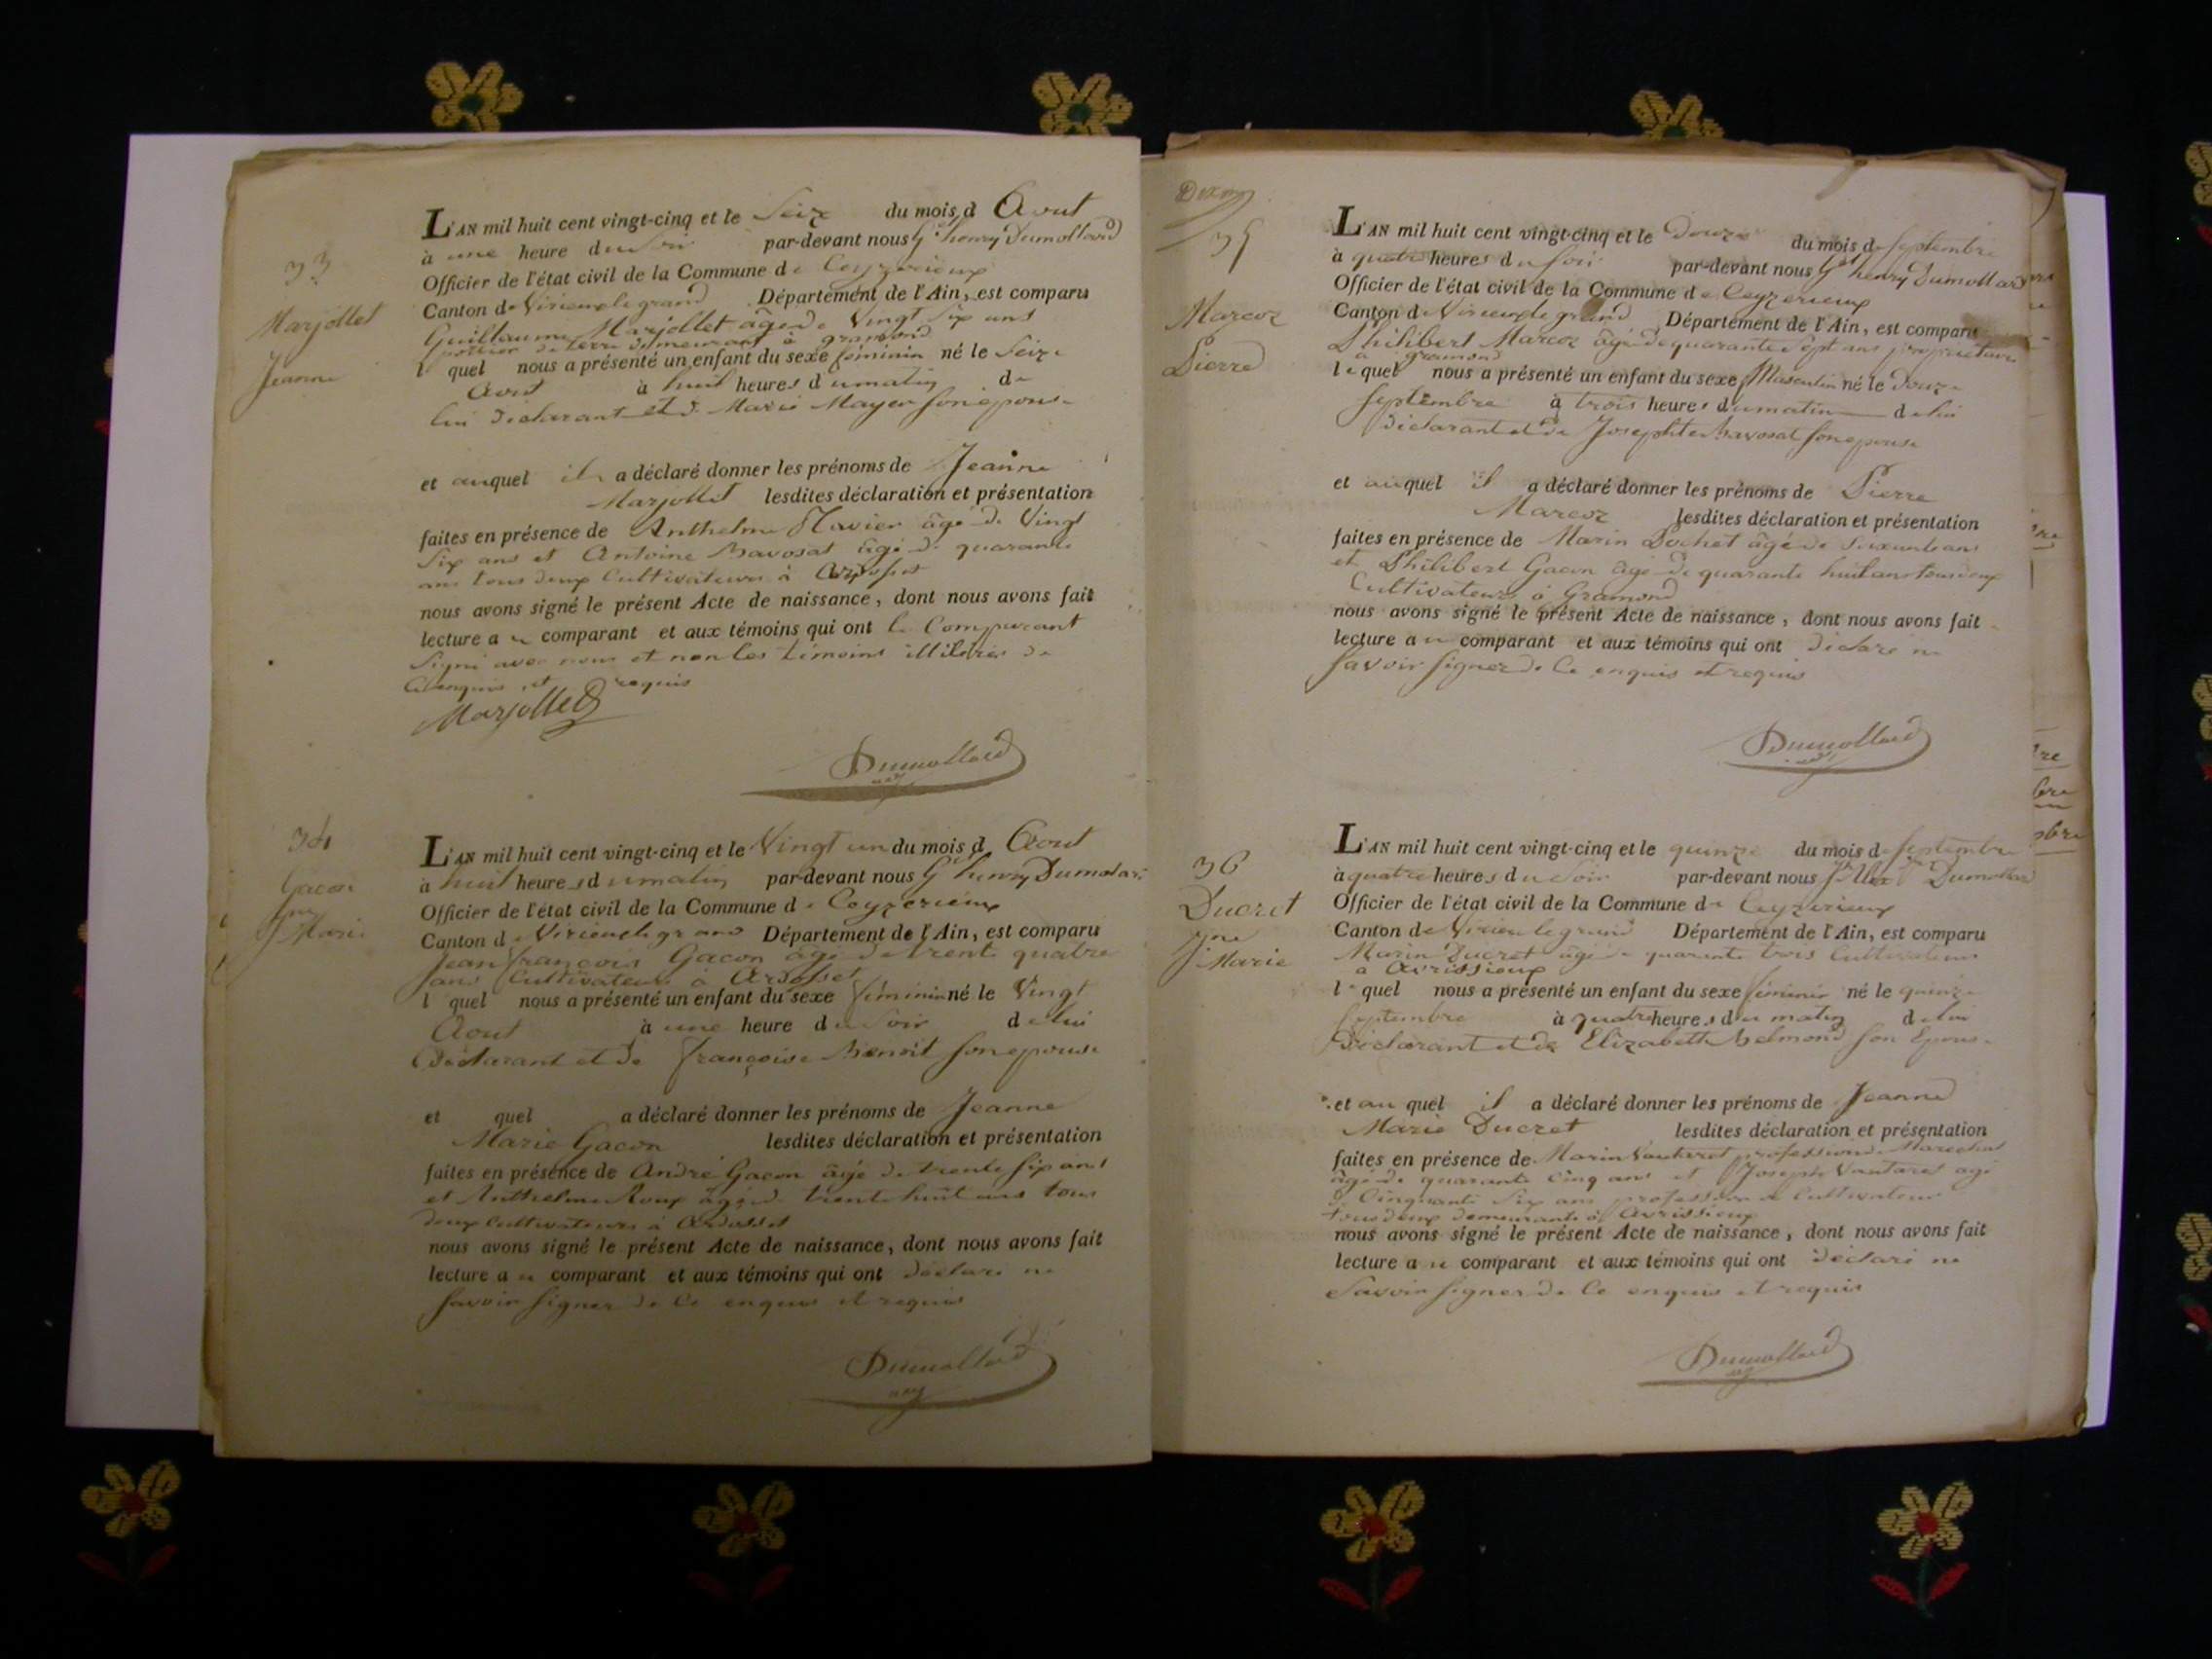 33
Marjollet
Jeanne
L'AN mil huit cent vingt-cinq et le Seize du mois d Aout
à une heure du Soir par-devant nous Gme henry Dumollard
Officier de l'état civil de la Commune de Ceyzerieux
Canton de Virieux le grand Département de l'Ain, est comparu
Guillaume Marjollet âgé de Vingt Six ans
de terre demeurant à gramond
l quel nous a présenté un enfant du sexe féminin né le Seize
Aout à huit heures du matin de
lui Déclarant et de Marie Mayer son epouse
et auquel il a déclaré donner les prénoms de Jeanne
Marjollet lesdites déclaration et présentation
faites en présence de Anthelme Flavier âgé de Vingt
Six ans et Antoine Bavosat âgé de quarante
ans tous deux Cultivateurs à Ardosset
nous avons signé le présent Acte de naissance, dont nous avons fait
lecture au comparant et aux témoins qui ont le Comparant
Signé avec nous et non les témoins illiterés de
ce enquis et requis
Marjollet
Dumollard
34
Gacon
Jne Marie
L'AN mil huit cent vingt-cinq et le Vingt un du mois d Aout
à huit heures du matin par-devant nous Gme henry Dumolard
Officier de l'état civil de la Commune de Ceyzerieux
Canton de Virieux le grand Département de l'Ain, est comparu
Jean françois Gacon âgé de trente quatre
ans Cultivateur à Ardosset
l quel nous a présenté un enfant du sexe féminin né le Vingt
Aout à une heure du Soir de lui
Déclarant et de françoise Benoit son epouse
et quel a déclaré donner les prénoms de Jeanne
Marie Gacon lesdites déclaration et présentation
faites en présence de André Gacon âgé de trente six ans
et Anthelme Roux âgé de trente huit ans tous
deux Cultivateurs à Ardosset
nous avons signé le présent Acte de naissance, dont nous avons fait
lecture au comparant et aux témoins qui ont déclaré ne
Savoir signer de Ce enquis et requis
Dumollard
35
Marcoz
Pierre
L'AN mil huit cent vingt-cinq et le Douze du mois de Septembre
à quatre heures du soir par-devant nous Gme henry Dumollard
Officier de l'état civil de la Commune de Ceyzerieux
Canton de Virieux le grand Département de l'Ain, est comparu
Philibert Marcoz âgé de quarante Sept ans proprietaire
a gramond
lequel nous a présenté un enfant du sexe Masculin né le Douze
Septembre à trois heures du matin de lui
Déclarant et de Josephte Bavosat son epouse
et auquel il a déclaré donner les prénoms de Pierre
Marcoz lesdites déclaration et présentation
faites en présence de Marin Pochet âgé de Soixante ans
et Philibert Gacon âgé de quarante huit ans tous deux
Cultivateurs à Gramond
nous avons signé le présent Acte de naissance, dont nous avons fait
lecture au comparant et aux témoins qui ont déclaré ne
Savoir signer de Ce enquis et requis
Dumollard
36
Ducret
Jne Marie
L'AN mil huit cent vingt-cinq et le quinze du mois de Septembre
à quatre heures du Soir par-devant nous Dumollard
Officier de l'état civil de la Commune de Ceyzerieux
Canton de Virieux le grand Département de l'Ain, est comparu
Marin Ducret âgé de quarante trois Cultivateur
a Avrissieux
lequel nous a présenté un enfant du sexe féminin né le quinze
Septembre à quatre heures du matin de lui
Déclarant et de Elizabeth Belmond son Epouse
et au quel il a déclaré donner les prénoms de Jeanne
Marie Ducret lesdites déclaration et présentation
faites en présence de Marin profession de Marechal
âgé de quarante Cinq ans et Joseph Vautaret agé
de Cinquante Six ans profession de Cultivateur
tous deux demeurants à Avrissieux
nous avons signé le présent Acte de naissance, dont nous avons fait
lecture au comparant et aux témoins qui ont déclaré ne
Savoir signer de Ce enquis et requis
Dumollard